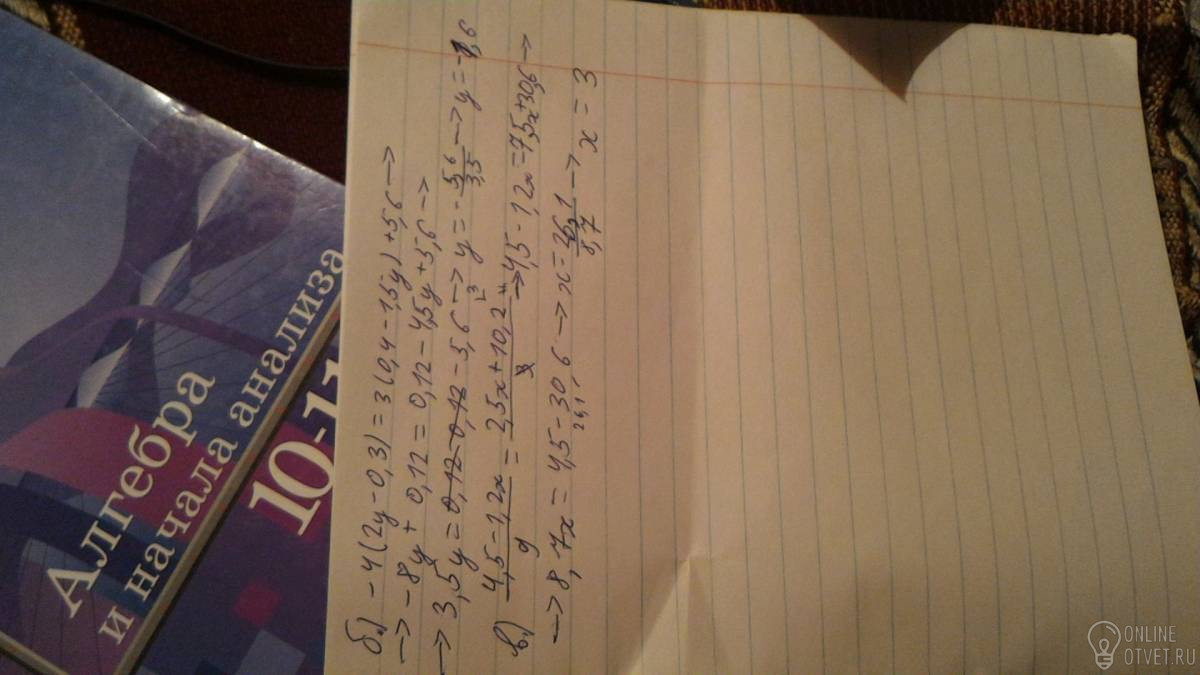 Алгебра
и начала анализа
10-11
б.) -4(2y-0,3)=3(0,4-1,5y)+5,6 —>
—> -8y + 0,12 = 0,12-4,5y+5,6 —>
—> 3,5y = 0,12-0,12-5,6 —> y = - 5,6/3,5 —> y = -1,6
в.) 4,5-1,2x/9 = 2,5x+10,2/3 —> 4,5-1,2x = 7,5x+30,6 —>
—> 8,7x = 4,5-30,6 —> x = 26,1/8,7 —> x = 3
26,1
ONLINE
OTVET.RU